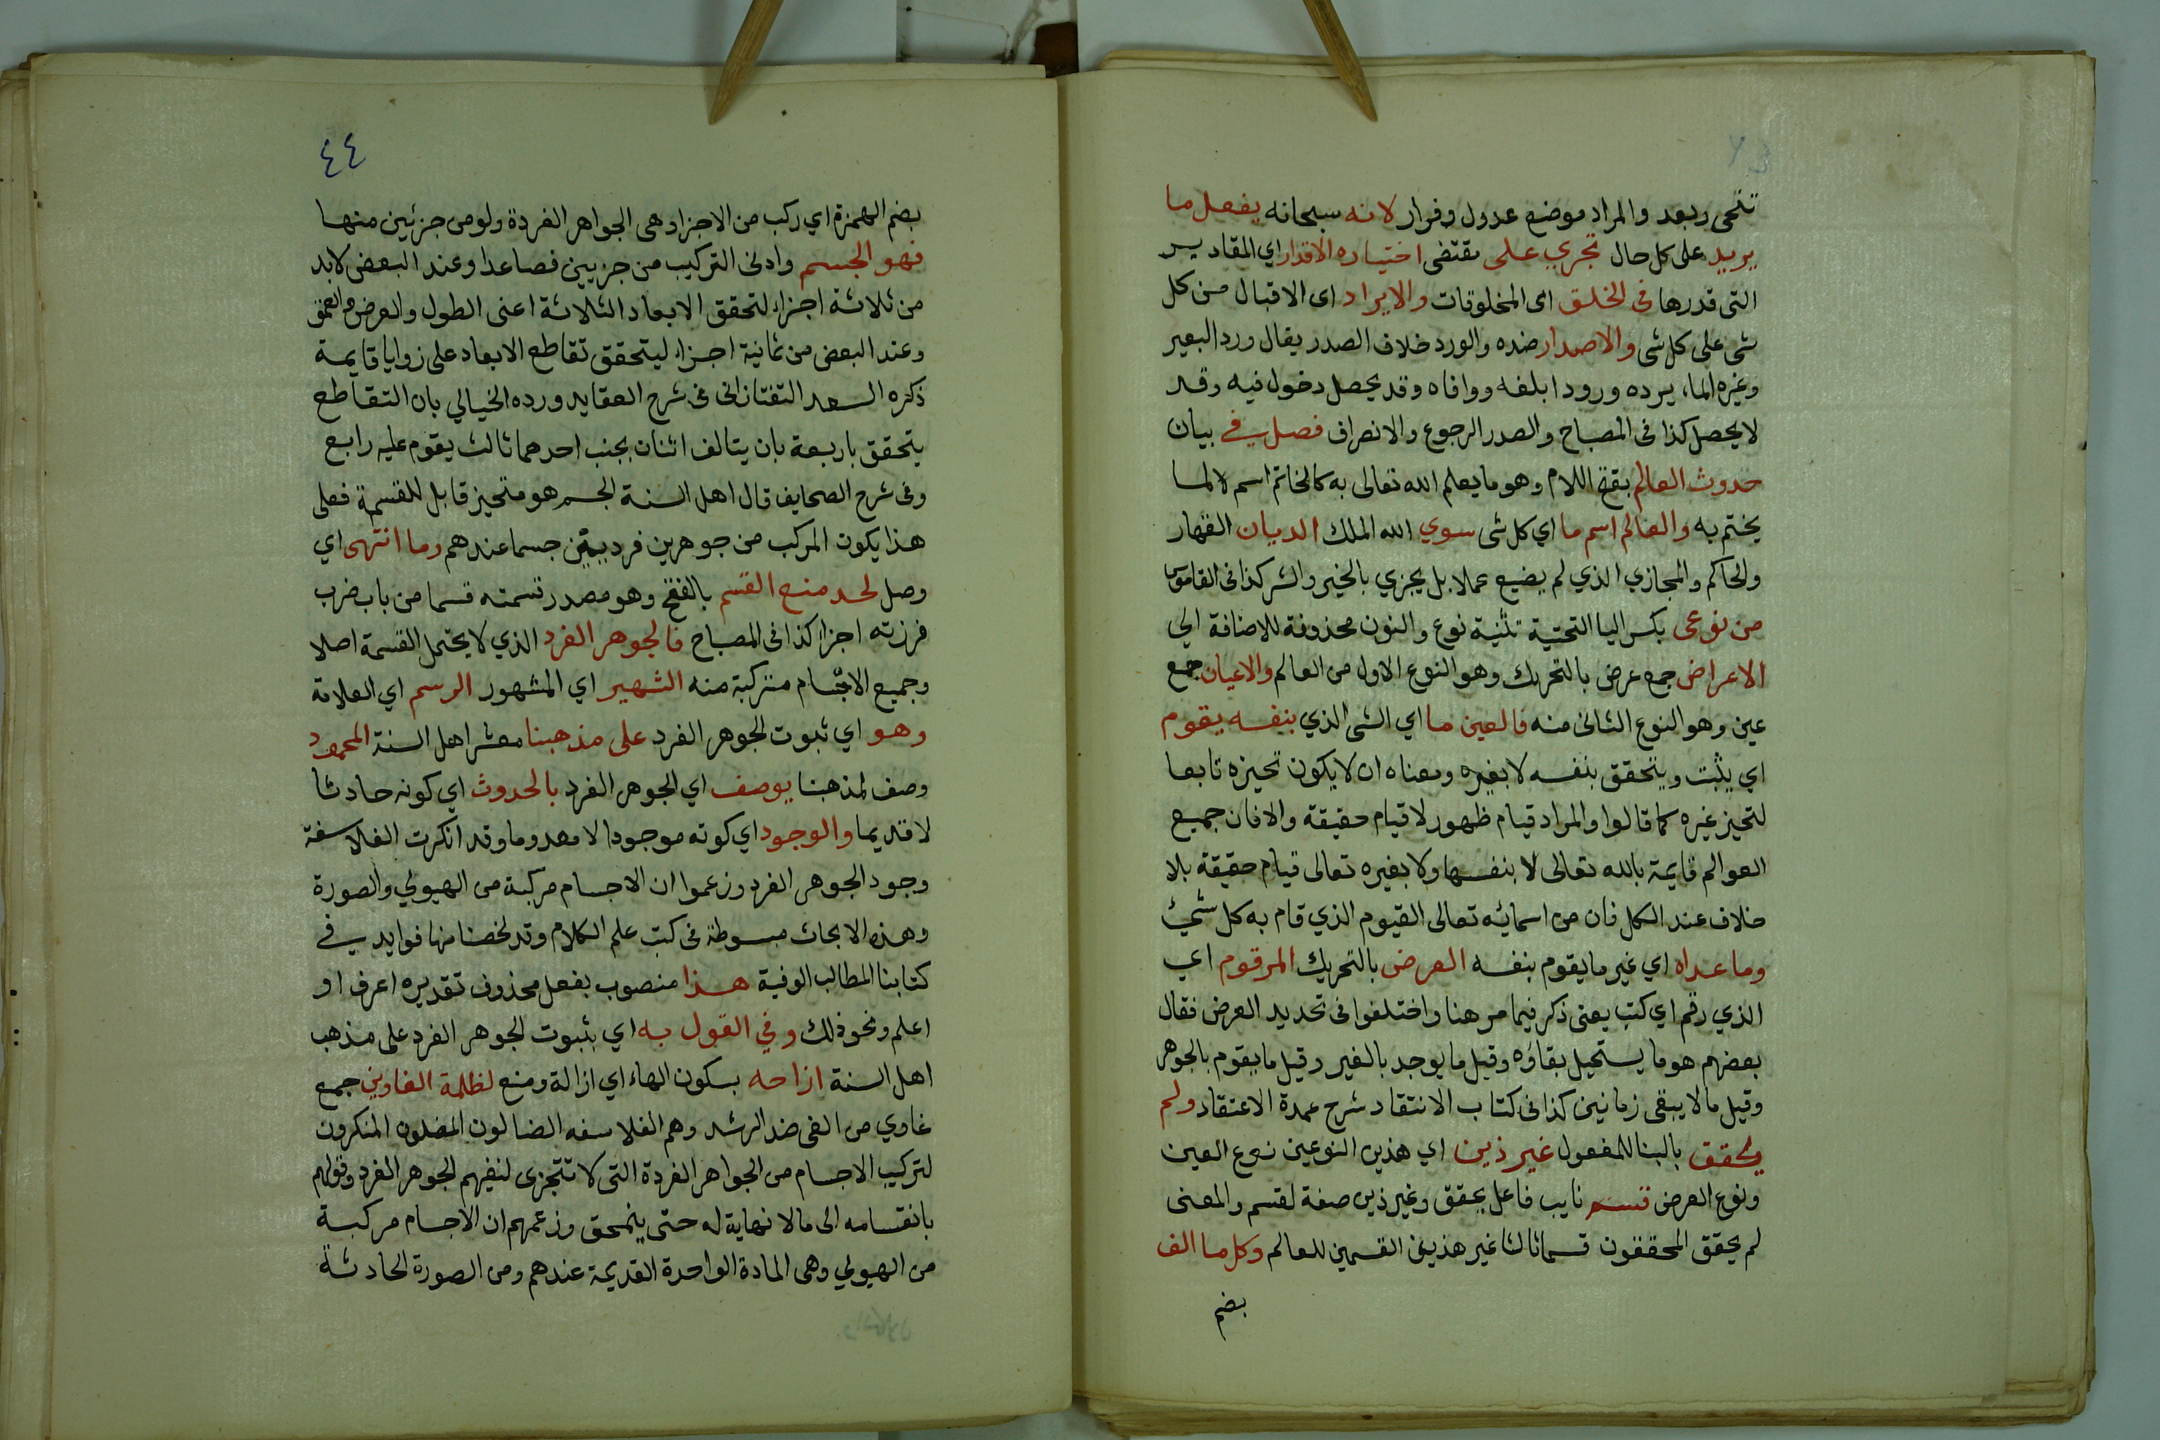 تنحى وبعد والمراد موضع عدول وفرار لانه سبحانه يفعل ما
يريد على كل حال تجري على مقتضى اختياره الاقدار اي المقادير
التى قدرها فى الخلق اى المخلوقات والايراد اى الاقبال من كل
شى على كل شى والاصدار ضده والورد خلاف الصدر يقال ورد البعير
وغيره الماء يرده ورودا بلغه ووافاه وقد يحصل دخول فيه وقد
لا يحصل كذا فى المصباح والصدر الرجوع والانصراف فصل في بيان
حدوث العالم بفتح اللام وهو ما يعلم الله تعالى به كالخاتم اسم لما
يختم به والعالم اسم ما اي كل شى سوي الله الملك الديان القهار
والحاكم والمجازي الذي لم يضيع عملا بل يجزي بالخير والشر كذا فى القاموس
من نوعى بكسر اليا التحتية تثنية نوع والنون محذوفة للاضافة الى
الاعراض جمع عرض بالتحريك وهو النوع الاول من العالم والاعيان جمع
عين وهو النوع الثانى منه فالعين ما اي الشى الذي بنفسه يقوم
اي يثبت ويتحقق بنفسه لا بغيره ومعناه ان لا يكون تحيزه تابعا
لتحيز غيره كما قالوا والمراد قيام ظهور لا قيام حقيقة والا فان جميع
العوالم قايمة بالله تعالى لا بنفسها ولا بغيره تعالى قيام حقيقة بلا
خلاف عند الكل فان من اسمائه تعالى القيوم الذي قام به كل شئ
وما عداه اي غير ما يقوم بنفسه العرض بالتحريك المرقوم اي
الذي رقم اي كتب يعنى ذكر فيما مر هنا واختلفوا فى تحديد العرض فقال
بعضهم هو ما يستحيل بقاؤه وقيل ما يوجد بالغير وقيل ما يقوم بالجوهر
وقيل ما لا يبقى زمانين كذا فى كتاب الانتقاد شرح عمدة الاعتقاد ولم
يحقق بالبنا للمفعول غير ذين اي هذين النوعين نوع العين
ونوع العرض قسم نايب فاعل يحقق وغير ذين صفة لقسم والمعنى
لم يحقق المحققون قسما ثالثا غير هذين القسمين للعالم وكل ما الف
بضم
٤٤
بضم الهمزة اي ركب من الاجزاء وهى الجواهر الفردة ولو من جزئين منها
فهو الجسم وادنى التركيب من جزيين فصاعدا وعند البعض لا بد
من ثلاثة اجزاء لتحقق الابعاد الثلاثة اعنى الطول والعرض والعمق
وعند البعض من ثمانية اجزاء ليتحقق تقاطع الابعاد على زوايا قايمة
ذكره السعد التفتازانى فى شرح العقايد ورده الخيالي بان التقاطع
يتحقق باربعة بان يتالف اثنان بجنب احدهما ثالث يقوم عليه رابع
وفى شرح الصحايف قال اهل السنة الجسم هو متحيز قابل للقسمة فعلى
هذا يكون المركب من جوهرين فرديين جسما عندهم وما انتهى اي
وصل لحد منع القسم بالفتح وهو مصدر قسمته قسما من باب ضرب
فرزته اجزاء كذا فى المصباح فالجوهر الفرد الذي لا يحتمل القسمة اصلا
وجميع الاجسام متركبة منه الشهير اي المشهور الرسم اي العلامة
وهو اي ثبوت الجوهر الفرد على مذهبنا معشر اهل السنة المحمود
وصف لمذهبنا يوصف اي الجوهر الفرد بالحدوث اي كونه حادثا
لا قديما والوجود اي كونه موجودا لا معدوما وقد انكرت الفلاسفة
وجود الجوهر الفرد وزعموا ان الاجسام مركبة من الهيولي والصورة
وهذه الابحاث مبسوطة فى كتب علم الكلام وقد لخصنا منها فوايد في
كتابنا المطالب الوفية هذا منصوب بفعل محذوف تقديره اعرف او
اعلم ونحو ذلك وفي القول به اي بثبوت الجوهر الفرد على مذهب
اهل السنة ازاحه بسكون الهاء اي ازالة ومنع لظلمة الغاوين جمع
غاوي من الغى ضد الرشد وهم الفلاسفه الضالون المضلون المنكرون
لتركيب الاجسام من الجواهر الفردة التى لا تتجزى لنفيهم الجوهر الفرد وقولهم
بانقسامه الى ما لا نهاية له حتى ينمحق وزعمهم ان الاجسام مركبة
من الهيولي وهى المادة الواحدة القديمة عندهم ومن الصورة الحادثة